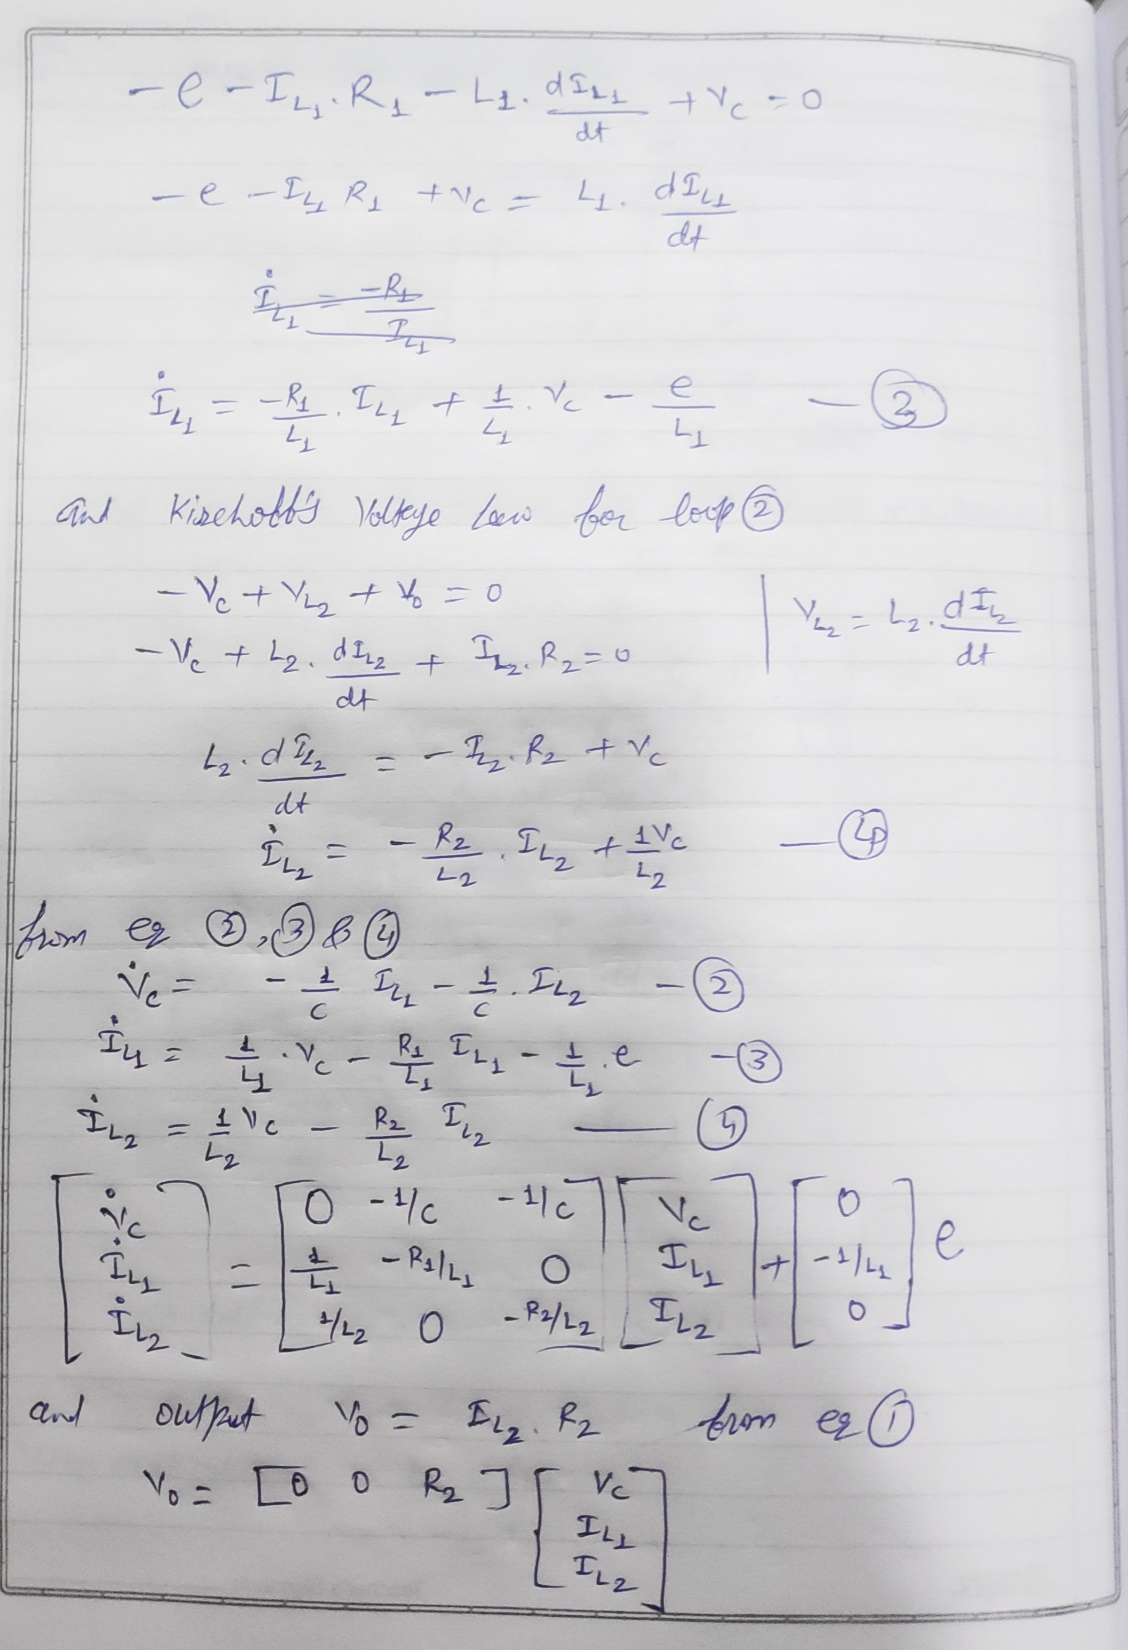 -e - I_L1 . R1 - L1 . dI_L1/dt + Vc = 0
-e - I_L1 R1 + Vc = L1 . dI_L1/dt
İ_L1 = -R1/I_L1
İ_L1 = -R1/L1 . I_L1 + 1/L1 . Vc - e/L1 — ③
and Kirchoff's Voltage Law for loop ②
-Vc + V_L2 + Vo = 0 | V_L2 = L2 . dI_L2/dt
-Vc + L2 . dI_L2/dt + I_L2 . R2 = 0
L2 . dI_L2/dt = -I_L2 . R2 + Vc
İ_L2 = - R2/L2 . I_L2 + 1Vc/L2 — ④
from eq ②, ③ & ④
V̇c = - 1/C I_L1 - 1/C . I_L2 — ②
İ_L1 = 1/L1 . Vc - R1/L1 I_L1 - 1/L1 . e — ③
İ_L2 = 1/L2 Vc - R2/L2 I_L2 — ④
[V̇c] = [0 -1/C -1/C] [Vc] + [0] e
[İ_L1] [1/L1 -R1/L1 0] [I_L1] [-1/L1]
[İ_L2] [1/L2 0 -R2/L2] [I_L2] [0]
and output Vo = I_L2 . R2 from eq ①
Vo = [0 0 R2] [Vc
I_L1
I_L2]